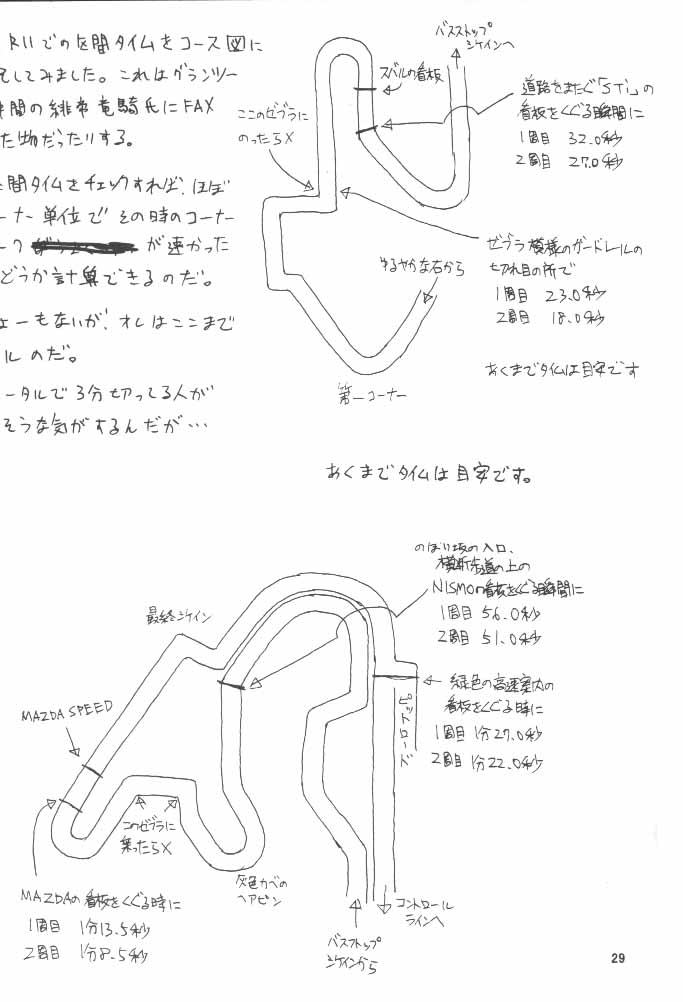 R11での区間タイムをコース図に
してみました。これはグランツー
仲間の緋本竜騎氏にFAX
た物だったりする。
間タイムをチェックすれば、ほぼ
ーナー単位でその時のコーナー
が速かった
どうか計算できるのだ。
ょーもないが、オレはここまで
ルのだ。
ータルで3分切ってる人が
そうな気がするんだが…
バスストップ
シケインへ
スバルの看板
道路をまたぐ「STi」の
看板をくぐる瞬間に
1周目 32.0秒
2周目 27.0秒
ここのゼブラに
のったら×
ゼブラ模様のガードレールの
切れ目の所で
1周目 23.0秒
2周目 18.0秒
ゆるやかな右から
あくまでタイムは目安です
第一コーナー
あくまでタイムは目安です。
のぼり坂の入口、
横断歩道の上の
NISMOの看板をくぐる瞬間に
1周目 56.0秒
2周目 51.0秒
最終シケイン
緑色の高速案内の
看板をくぐる時に
1周目 1分27.0秒
2周目 1分22.0秒
ピットロード
MAZDA SPEED
このゼブラに
乗ったら×
灰色カベの
ヘアピン
MAZDAの看板をくぐる時に
1周目 1分13.5秒
2周目 1分8.5秒
コントロール
ラインへ
バスストップ
シケインから
29